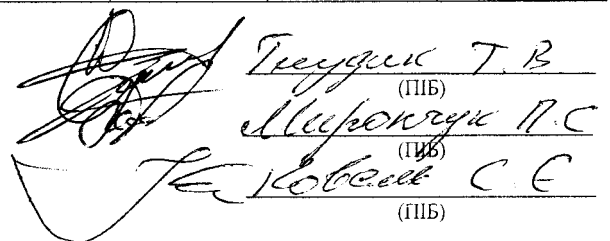 Т. В
(ПІБ)
Мирончук П. С
(ПІБ)
Коваль С. Є
(ПІБ)